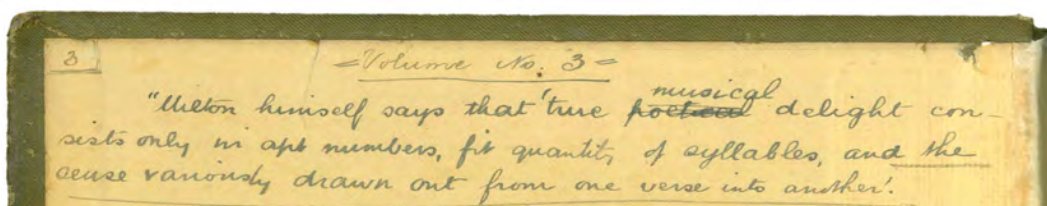 3
= Volume No. 3 =
musical
"Milton himself says that 'true poetical delight con-
sists only in apt numbers, fit quantity of syllables, and the
sense variously drawn out from one verse into another'.